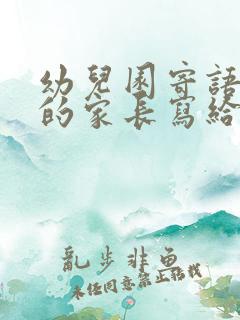 幼兒園寄語
的家長寫給
亂步非魚
未經同意禁止搭我